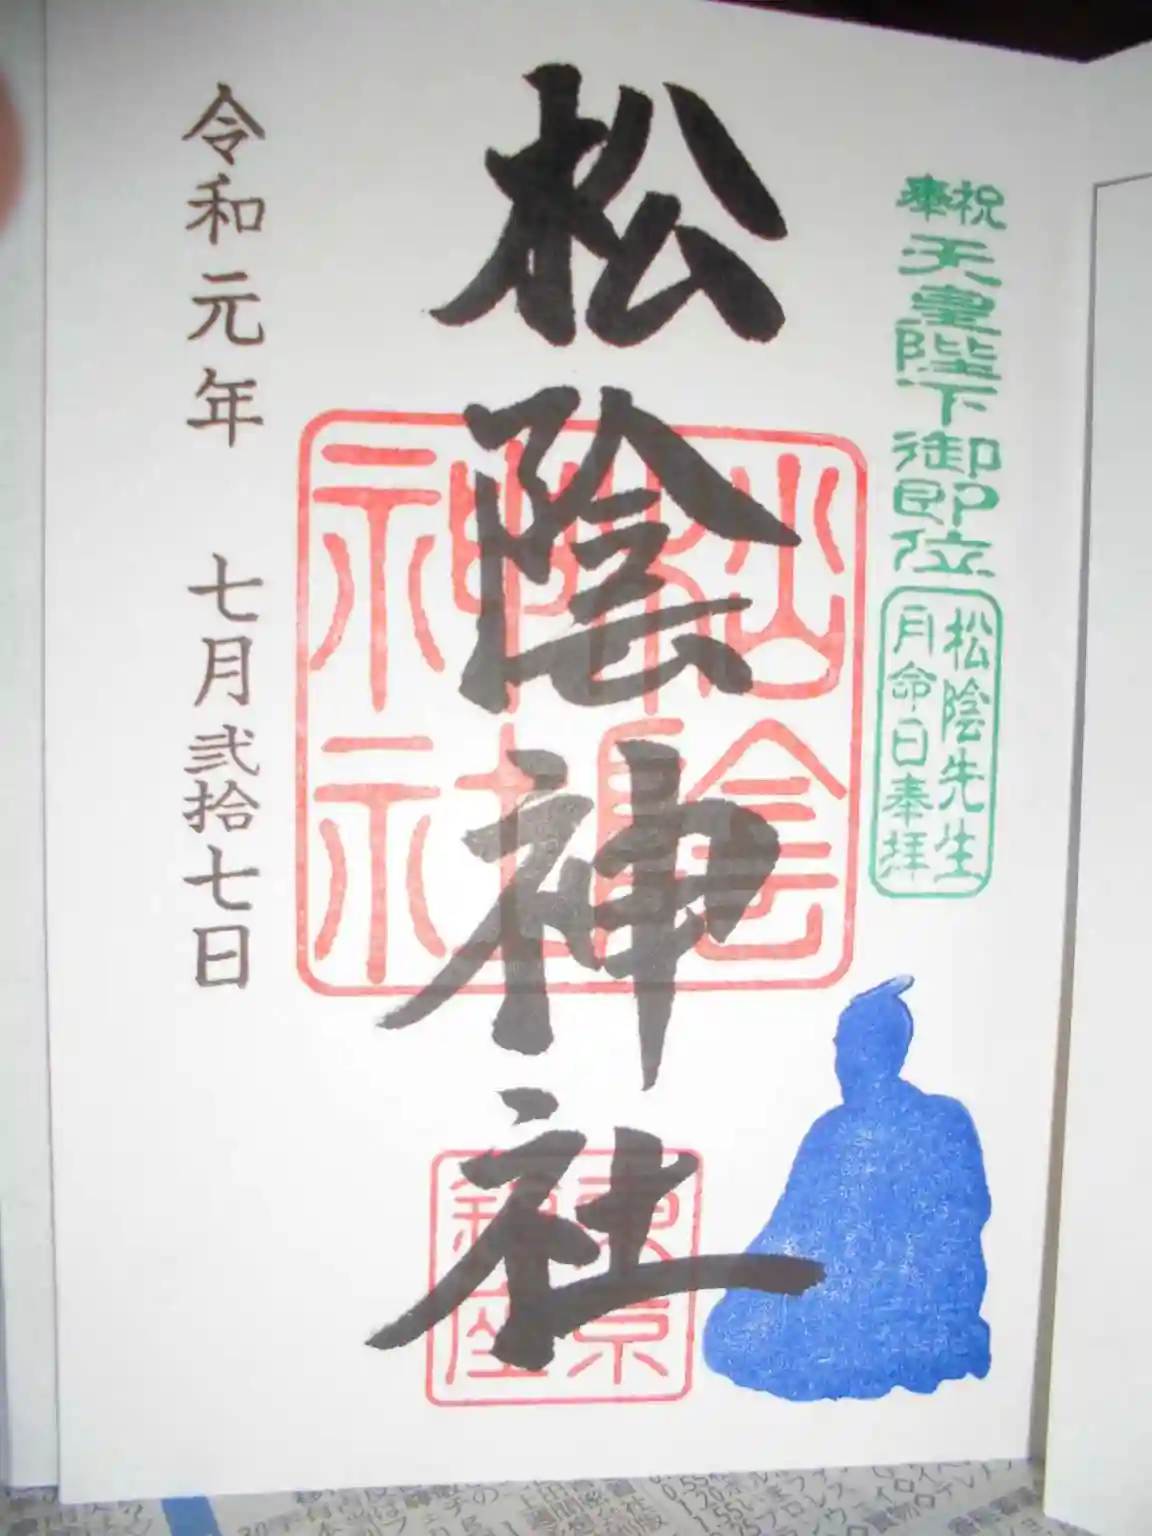 奉祝
天皇陛下御即位
松陰先生
月命日奉拝
松陰神社
松陰神社
東京
鎮座
令和元年 七月弐拾七日